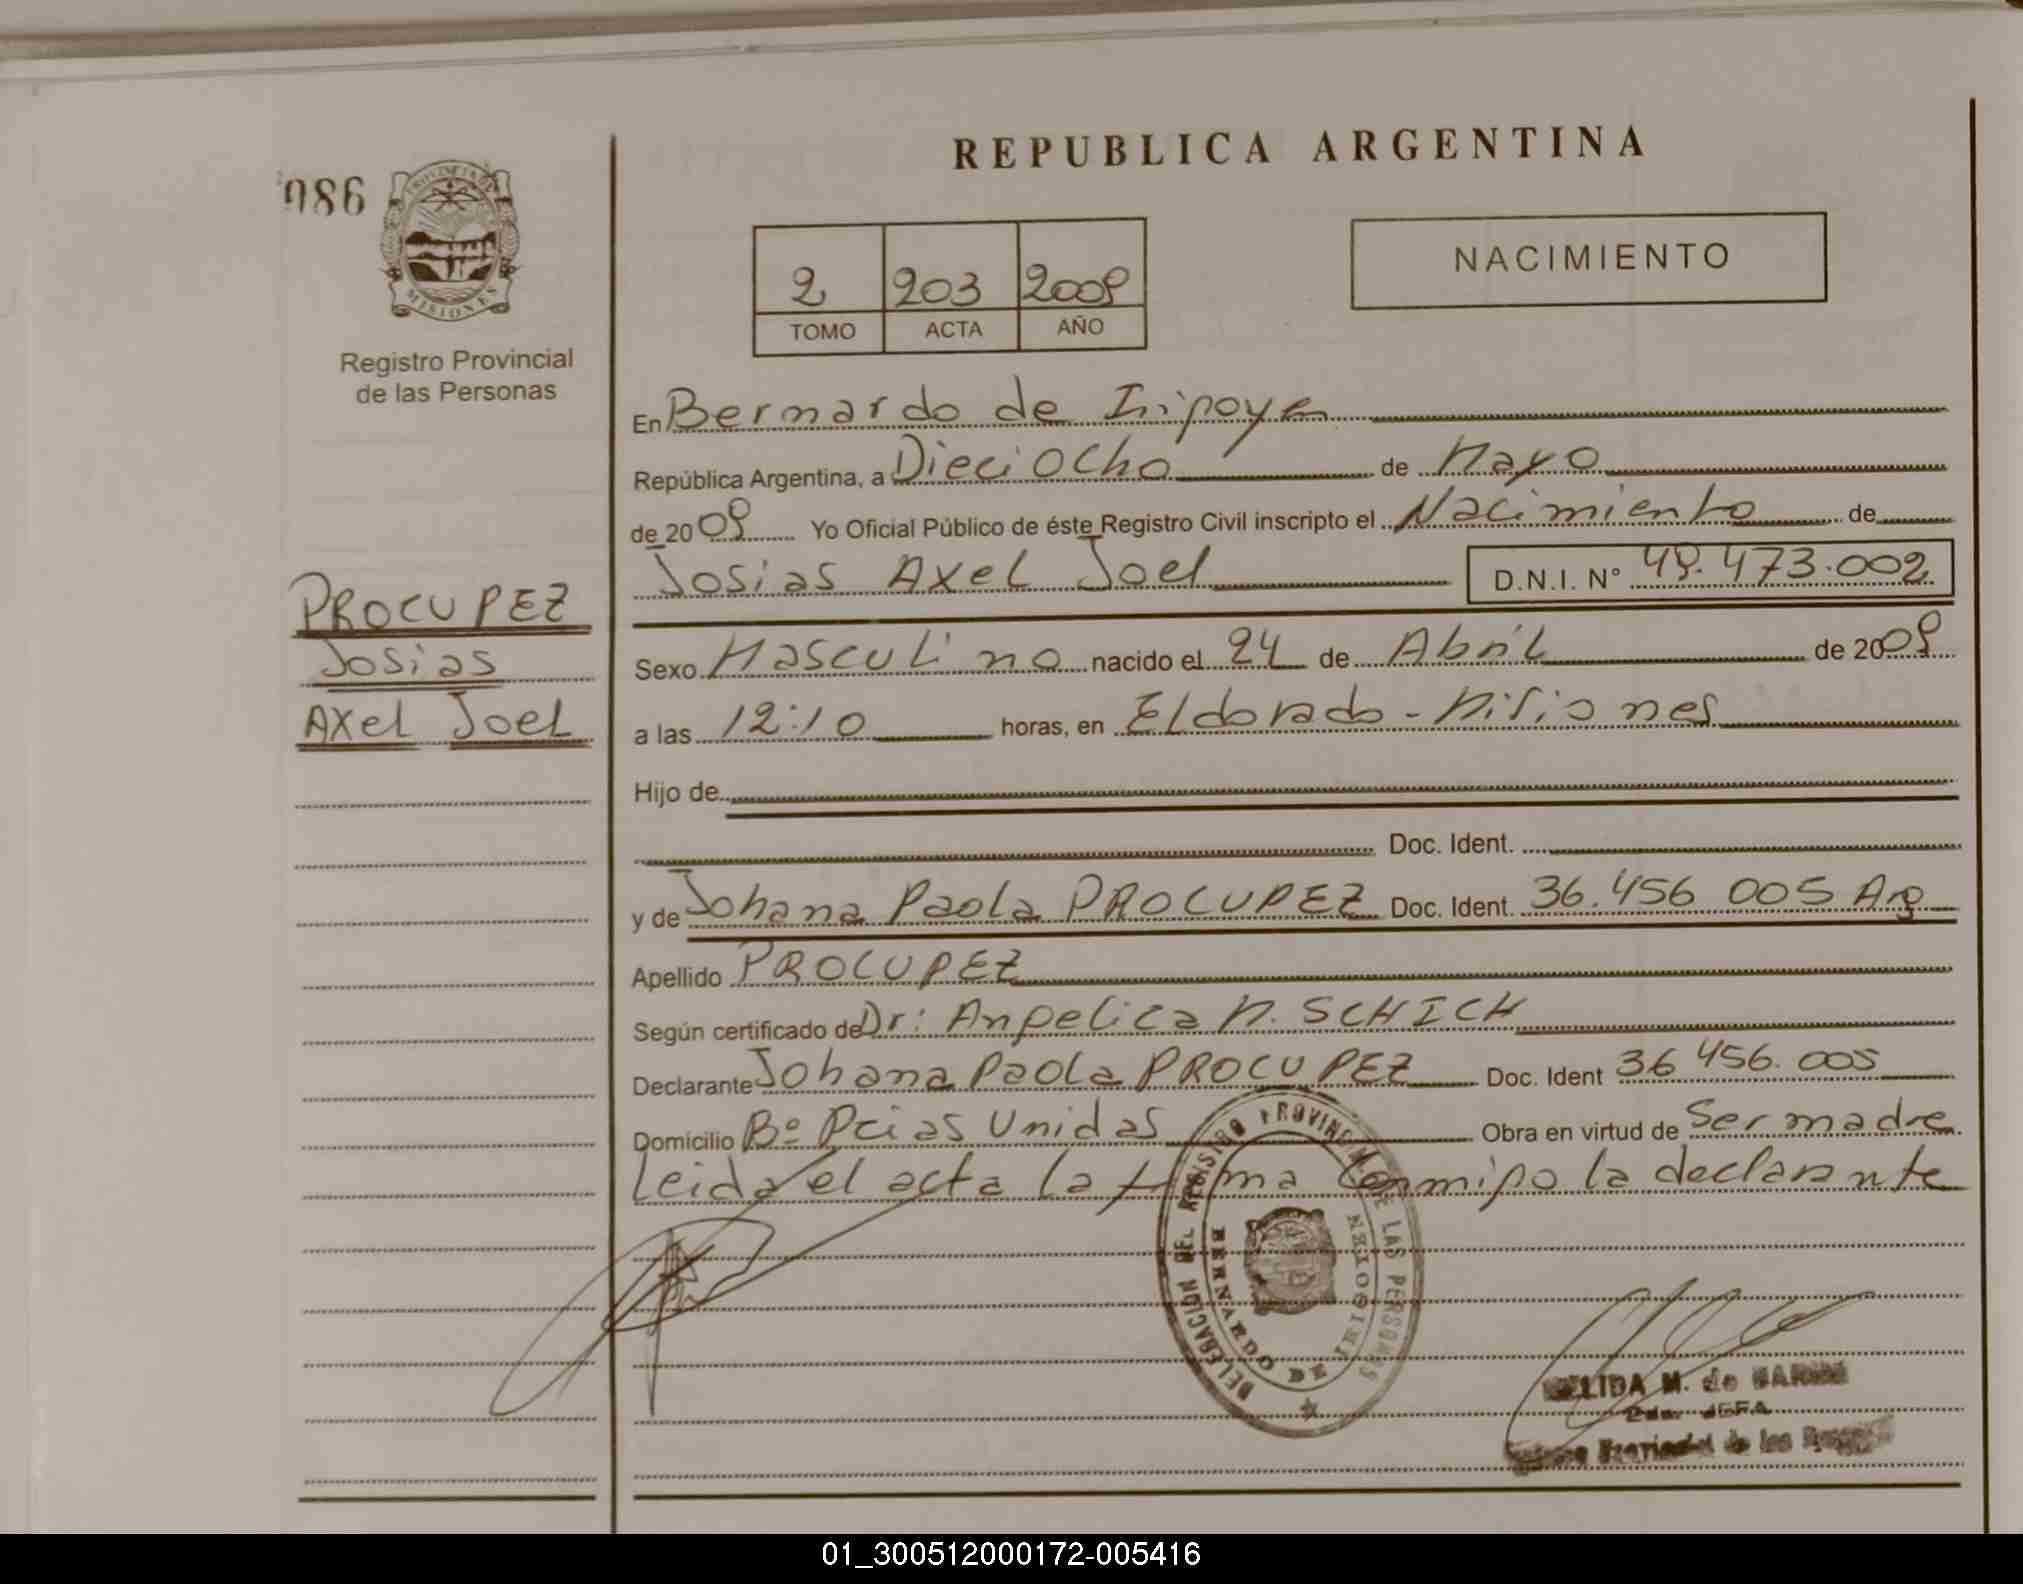 REPUBLICA ARGENTINA
986
PROVINCIA DE
MISIONES
Registro Provincial
de las Personas
NACIMIENTO
2 203 2009
TOMO ACTA AÑO
En Bernardo de Irigoyen
República Argentina, a Dieciocho de Mayo
de 2009 Yo Oficial Público de éste Registro Civil inscripto el Nacimiento de
Josias Axel Joel D.N.I. N° 49.473.002
PROCUPEZ
Josias
Axel Joel
Sexo Masculino nacido el 24 de Abril de 2009
a las 12:10 horas, en Eldorado - Misiones
Hijo de
Doc. Ident.
y de Johana Paola PROCUPEZ Doc. Ident. 36.456 005 Arg
Apellido PROCUPEZ
Según certificado de Dr: Angelica M. SCHICH
Declarante Johana Paola PROCUPEZ Doc. Ident 36 456. 005
Domicilio B° Pcias Unidas Obra en virtud de Ser madre
Leida el acta la firma Conmigo la declarante
DELEGACION DEL REGISTRO PROVINCIAL DE LAS PERSONAS
BERNARDO DE IRIGOYEN
M. de
JEFA
Provincial de las
01_300512000172-005416